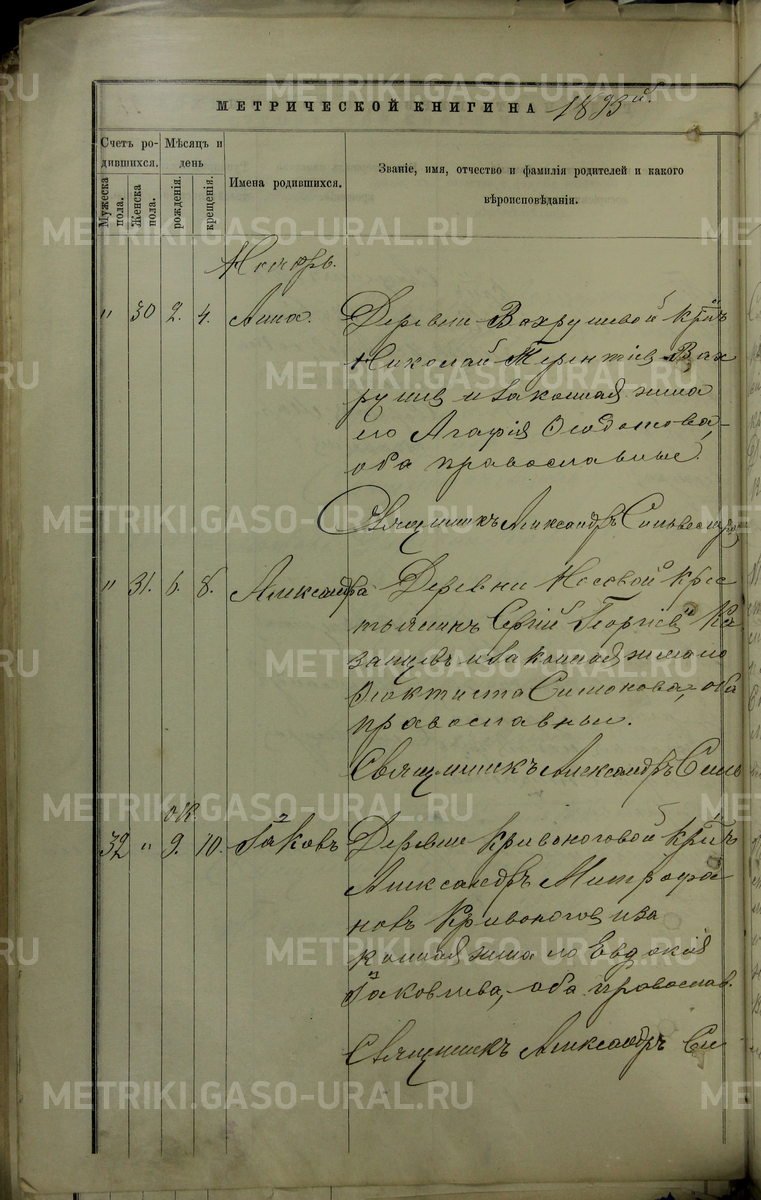 МЕТРИЧЕСКОЙ КНИГИ НА 1893й.
Счетъ родившихся.
Мужеска пола.
Женска пола.
Мѣсяцъ и день
рожденія.
крещенія.
Имена родившихся.
Званіе, имя, отчество и фамилія родителей и какого
вѣроисповѣданія.
Ноябрь.
" 30 2. 4. Анна. Деревни Вахрушевой кр͠нъ
Николай Терентіев Вах
рушев и законная жена
его Агафія Ѳеодотова,
оба православные.
Священникъ Александръ
" 31. 6. 8. Александра Деревни Носовой крес
тьянинъ Сергій Георгіев Ка
занцевъ и законная жена его
Ѳеоктиста Симонова, оба
православные.
Священникъ Александръ
ок.
32 " 9. 10. Іаковъ Деревни Кривоноговой кр͠нъ
Александръ Митрофа
новъ Кривоногов и за
конная жена его Евдокія
Іаковлева, оба православ.
Священникъ Александръ
METRIKI.GASO-URAL.RU